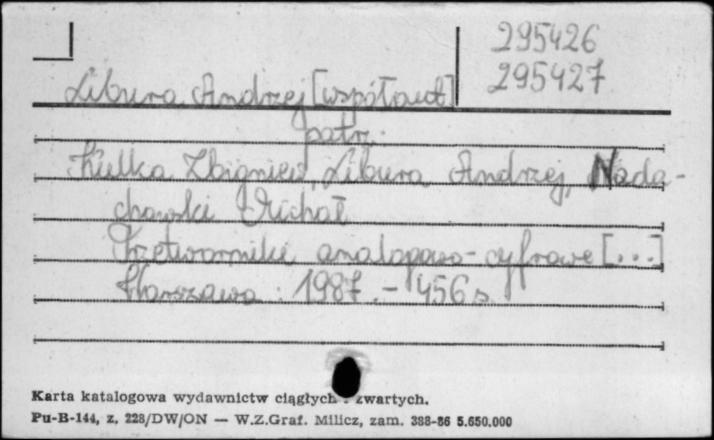 295426
295427
Libura Andrzej [współaut]
patrz:
Kulka Zbigniew, Libura Andrzej, Nada-
chowski Michał
Przetworniki analogowo-cyfrowe [...]
Warszawa : 1987. - 456 s.
Karta katalogowa wydawnictw ciągłych i zwartych.
Pu-B-144, z. 228/DW/ON — W.Z.Graf. Milicz, zam. 388-86 5.650.000